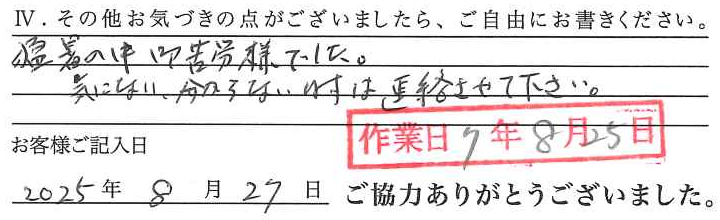 Ⅳ．その他お気づきの点がございましたら、ご自由にお書きください。
猛暑の中 御苦労様でした。
気になない、分からない時は連絡させて下さい。
お客様ご記入日
作業日 7年8月25日
2025年 8月27日 ご協力ありがとうございました。